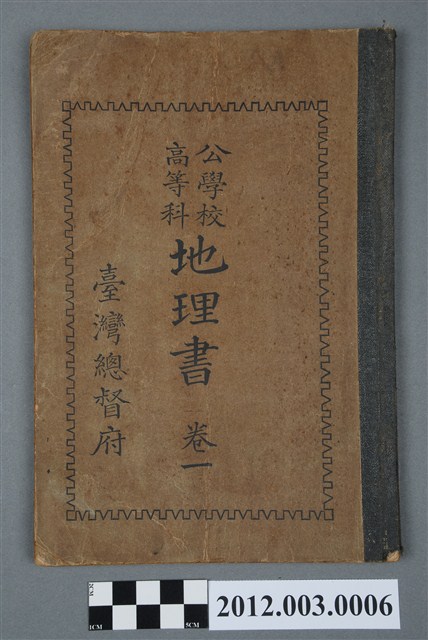 公學校
高等科
地理書 卷一
臺灣總督府
1CM
5CM
2012.003.0006